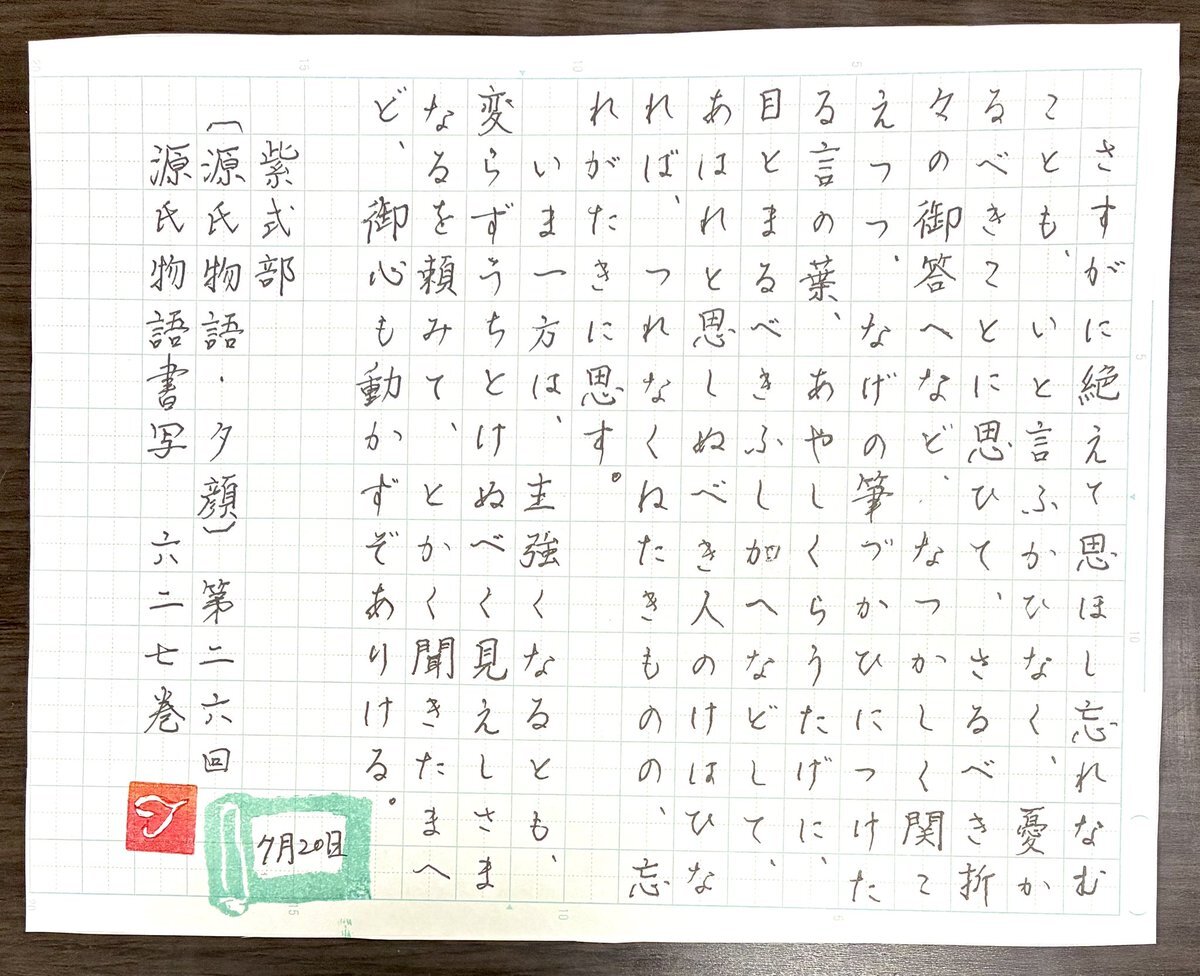 さすがに絶えて思ほし忘れなむ
ことも、いと言ふかひなく、憂か
るべきことに思ひて、さるべき折
々の御答へなど、なつかしく関こ
えつつ、なげの筆づかひにつけた
る言の葉、あやしくらうたげに、
目とまるべきふし加へなどして、
あはれと思しぬべき人のけはひな
れば、つれなくねたきものの、忘
れがたきに思す。
いま一方は、主強くなるとも、
変らずうちとけぬべく見えしさま
なるを頼みて、とかく聞きたまへ
ど、御心も動かずぞありける。
紫式部
〔源氏物語・夕顔〕第二六回
源氏物語書写　六二七巻
7月20日